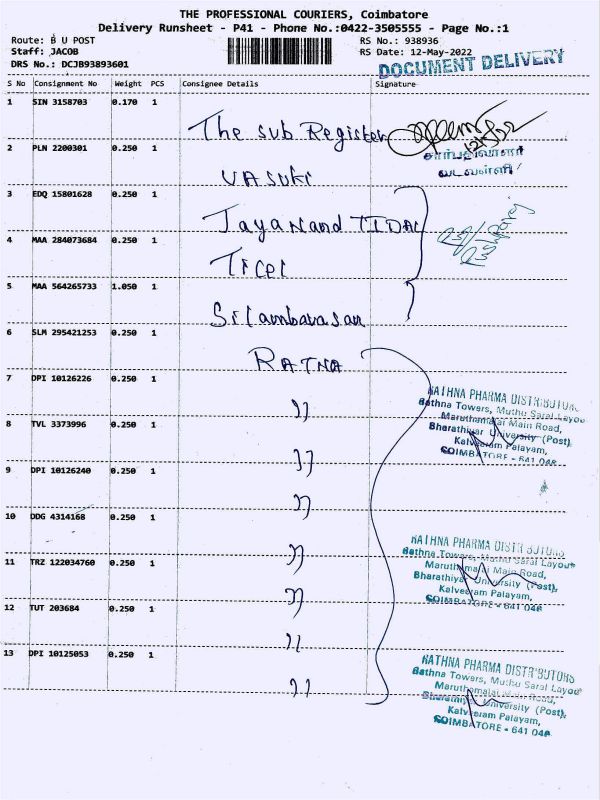 THE PROFESSIONAL COURIERS, Coimbatore
Delivery Runsheet - P41 - Phone No.:0422-3505555 - Page No.:1
Route: B U POST
RS No.: 938936
Staff: JACOB
RS Date: 12-May-2022
DRS No.: DCJB93893601
DOCUMENT DELIVERY
S No Consignment No Weight PCS Consignee Details Signature
1 SIN 3158703 0.170 1
The Sub Register
12/5/22
சார்பதிவாளர்
வடவள்ளி
2 PLN 2200301 0.250 1
VASUKI
3 EDQ 15801628 0.250 1
JayaNand TIDAL
4 MAA 284073684 0.250 1
Ticel
5 MAA 564265733 1.050 1
Silambarasan
6 SLM 295421253 0.250 1
RATNA
7 DPI 10126226 0.250 1
"
RATHNA PHARMA DISTRIBUTORS
Rathna Towers, Muthu Saral Layout
Maruthamalai Main Road,
Bharathiyar University (Post),
Kalveeram Palayam,
COIMBATORE - 641 046
8 TVL 3373996 0.250 1
"
9 DPI 10126240 0.250 1
"
10 DDG 4314168 0.250 1
"
11 TRZ 122034760 0.250 1
"
RATHNA PHARMA DISTRIBUTORS
Rathna Towers, Muthu Saral Layout
Maruthamalai Main Road,
Bharathiyar University (Post),
Kalveeram Palayam,
COIMBATORE - 641 046
12 TUT 203684 0.250 1
"
13 DPI 10125053 0.250 1
"
RATHNA PHARMA DISTRIBUTORS
Rathna Towers, Muthu Saral Layout
Maruthamalai Main Road,
Bharathiyar University (Post),
Kalveeram Palayam,
COIMBATORE - 641 046